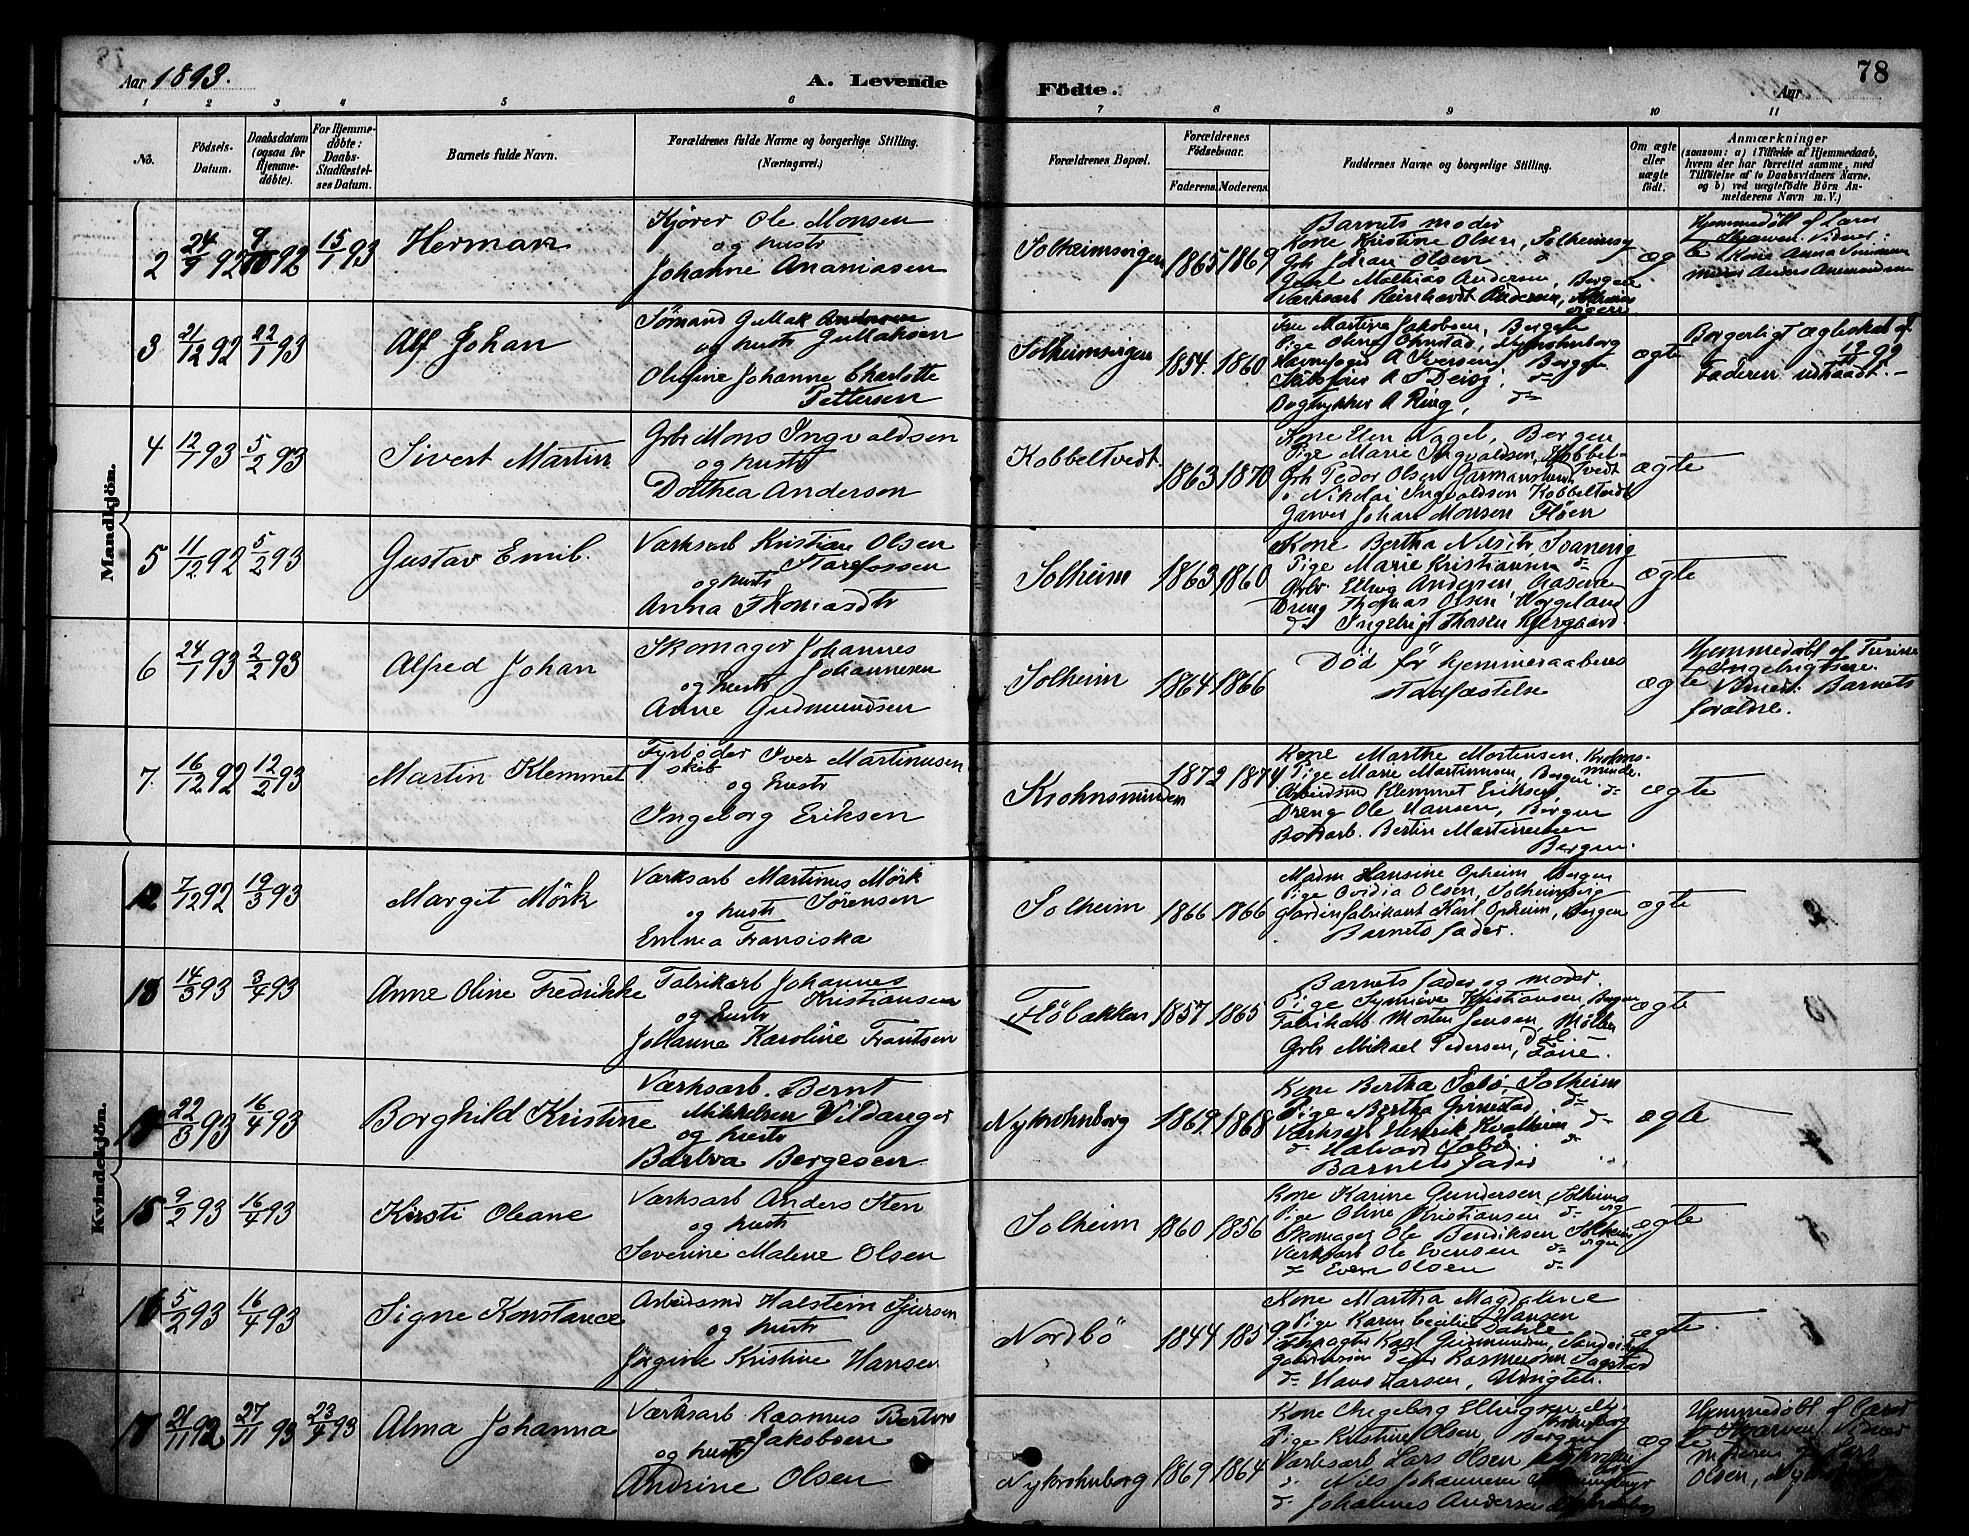 Aar 1893.
A. Levende
Födte.
78
Aar
1 2 3 4 5 6 7 8 9 10 11
No.
Födsels-
Datum.
Daabsdatum
(ogsaa for
Hjemme-
døbte).
For Hjemme-
døbte:
Daabs-
Stadfæstel-
ses Datum.
Barnets fulde Navn.
Forældrenes fulde Navne og borgerlige Stilling.
(Næringsvei.)
Forældrenes Bopæl.
Forældrenes
Födselsaar.
Faderens.
Moderens.
Faddernes Navne og borgerlige Stilling.
Om ægte
eller
uægte
födt.
Anmærkninger
(saasom: a) i Tilfælde af Hjemmedaab,
hvem der har forrettet samme, med
Tilföielse af to Daabsvidners Navne,
og b) ved uægtefödte Börn An-
melderens Navn m. V.)
Mandkjön.
2 24/9 92 9/10 92 15/1 93 Herman
Kjörer Ole Monsen
og hustr
Johanne Ananiasen
Solheimsvigen 1865 1869
Barnets moder
Kone Kristine Olsen, Solheimsvg
Grb Johan Olsen
Mathias Andersen, Bergen
Værksarb Reinhardt Andersen, Solheims
vigen
ægte
Hjemmedöbt af Lærer
Skarven. Vidner:
Kone Anna
Anders
3 21/12 92 22/1 93 Alf Johan
Sömand Gullak
og hustr Gullaksen
Olefine Johanne Charlotte
Pettersen
Solheimsvigen 1854. 1860
Martine Jakobsen, Bergen
Pige Oline, Nykrohnborg
A Iversen, Bergen
Skibsförer A
Bogtrykker A Ring,
ægte
Borgerligt ægteskab af
12/10 92
Faderen udtraadt.
4 12/1 93 5/2 93 Sivert Martin
Grb Mons Ingvaldsen
og hustr
Dorthea Andersen
Kobbeltvedt. 1863 1870
Kone Elen Nagel, Bergen
Pige Marie Ingvaldsen, Kobbel-
tvedt
Grb Peder Olsen
Nikolai Ingvaldsen Kobbeltvedt
Garver Johan Monsen Flöen
ægte
5 11/12 92 5/2 93 Gustav Emil.
Værksarb Kristian Olsen
Starefossen
og hustr
Anna Thomasdtr
Solheim 1863 1860
Kone Bertha Nilsdtr
Pige Marie Kristiansen do
Grb Elling Andersen
Dreng Thomas Olsen
do Ingebrigt Thorsen
ægte
6 24/1 93 2/2 93 Alfred Johan
Skomager Johannes
Johannesen
og hustr
Anne Gudmundsen
Solheim 1864 1866
Död för hjemmedaabens
stadfæstelse
ægte
Hjemmedöbt af
Ingebrigtsen.
Vidner: Barnets
forældre.
7. 16/12 92 12/2 93 Martin Klemmet
Fyrböder Iver Martinusen
skib
og hustr
Ingeborg Eriksen
Krohnsminden 1872 1874
Kone Marthe Mortensen. Krohns-
minde.
Pige Marie Martinusen, Bergen.
Arbeidsmd Klemmet Eriksen do
Dreng Ole Hansen, Bergen
Bertin Martinusen
Bergen.
ægte
Kvindekjön.
12 7/12 92 19/3 93 Margit Mörk
Værksarb Martinus Mörk
Sörensen
og hustr
Emma Fransiska
Solheim 1866 1866
Madm Hansine Opheim Bergen
Pige Ovidia Olsen, Solheimsvig
Gardinfabrikant Karl Opheim, Bergen
Barnets fader.
ægte
13 14/3 93 3/4 93 Anne Oline Fredrikke
Fabrikarb Johannes
Kristiansen
og hustr
Johanne Karoline Frantsen
Flöbakken 1857 1865
Barnets fader og moder.
Pige Synnöve Kristiansen Bergen
Fabrikarb Morten Jensen, Möllen
dal
Grb Mikael Pedersen,
ægte
14 22/3 93 16/4 93 Borghild Kristine
Værksarb. Bernt
Mikkelsen Vildanger
og hustr
Barbra Bergesen
Nykrohnborg 1869. 1868
Kone Bertha Sæbö, Solheim
Pige Bertha do
Værksarb Henrik Kvalheim do
do Halvard Sæbö do
Barnets fader
ægte
15 9/2 93 16/4 93 Kirsti Oleane
Værksarb Anders Sten
og hustr
Severine Malene Olsen
Solheim 1860 1856
Kone Karine Gundersen, Solheims
vig
Pige Oline Kristiansen do
Skomager Ole Bendiksen Solheims
vigen
Værksarb Ole Evensen do
do Even Olsen do
ægte
16 5/2 93 16/4 93 Signe Konstance
Arbeidsmd Halstein Sjursen
og hustr
Jörgine Kristine Hansen
Nordbö 1844 1859
Kone Martha Magdalene
Hansen
Pige Karen Cecilie Dahle
Karl Gudmundsen,
Peder Rasmussen
do Hans Larsen,
ægte.
17 21/11 92 27/11 93 23/4 93 Alma Johanna
Værksarb Rasmus
Jakobsen
og hustr
Andrine Olsen
Nykrohnborg 1869 1864
Kone Ingeborg Ellingsen, Ny-
krohnborg
Pige Kristine Olsen, Bergen
Værksarb Lars Olsen
do Nils Johannesen
do Johannes Andersen
ægte
Hjemmedöbt af Lærer
Skarven. Vidner
moderen og Lars
Olsen,